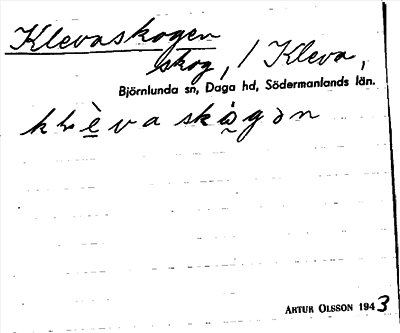 Klevaskogen
skog, / Kleva,
Björnlunda sn, Daga hd, Södermanlands län.
ARTUR OLSSON 1943